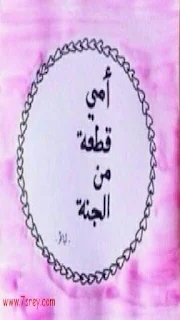 أمي
قطعة
من
الجنة
www.7srey.com